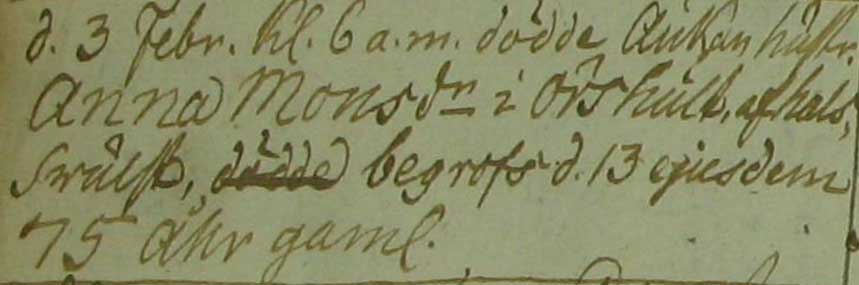 d. 3 Febr. kl. 6 a.m. dödde Änkan hustr.
Anna Monsdr i Örshult, af hals,
swulst, dödde begrofs d. 13 ejusdem
75 åhr gaml.